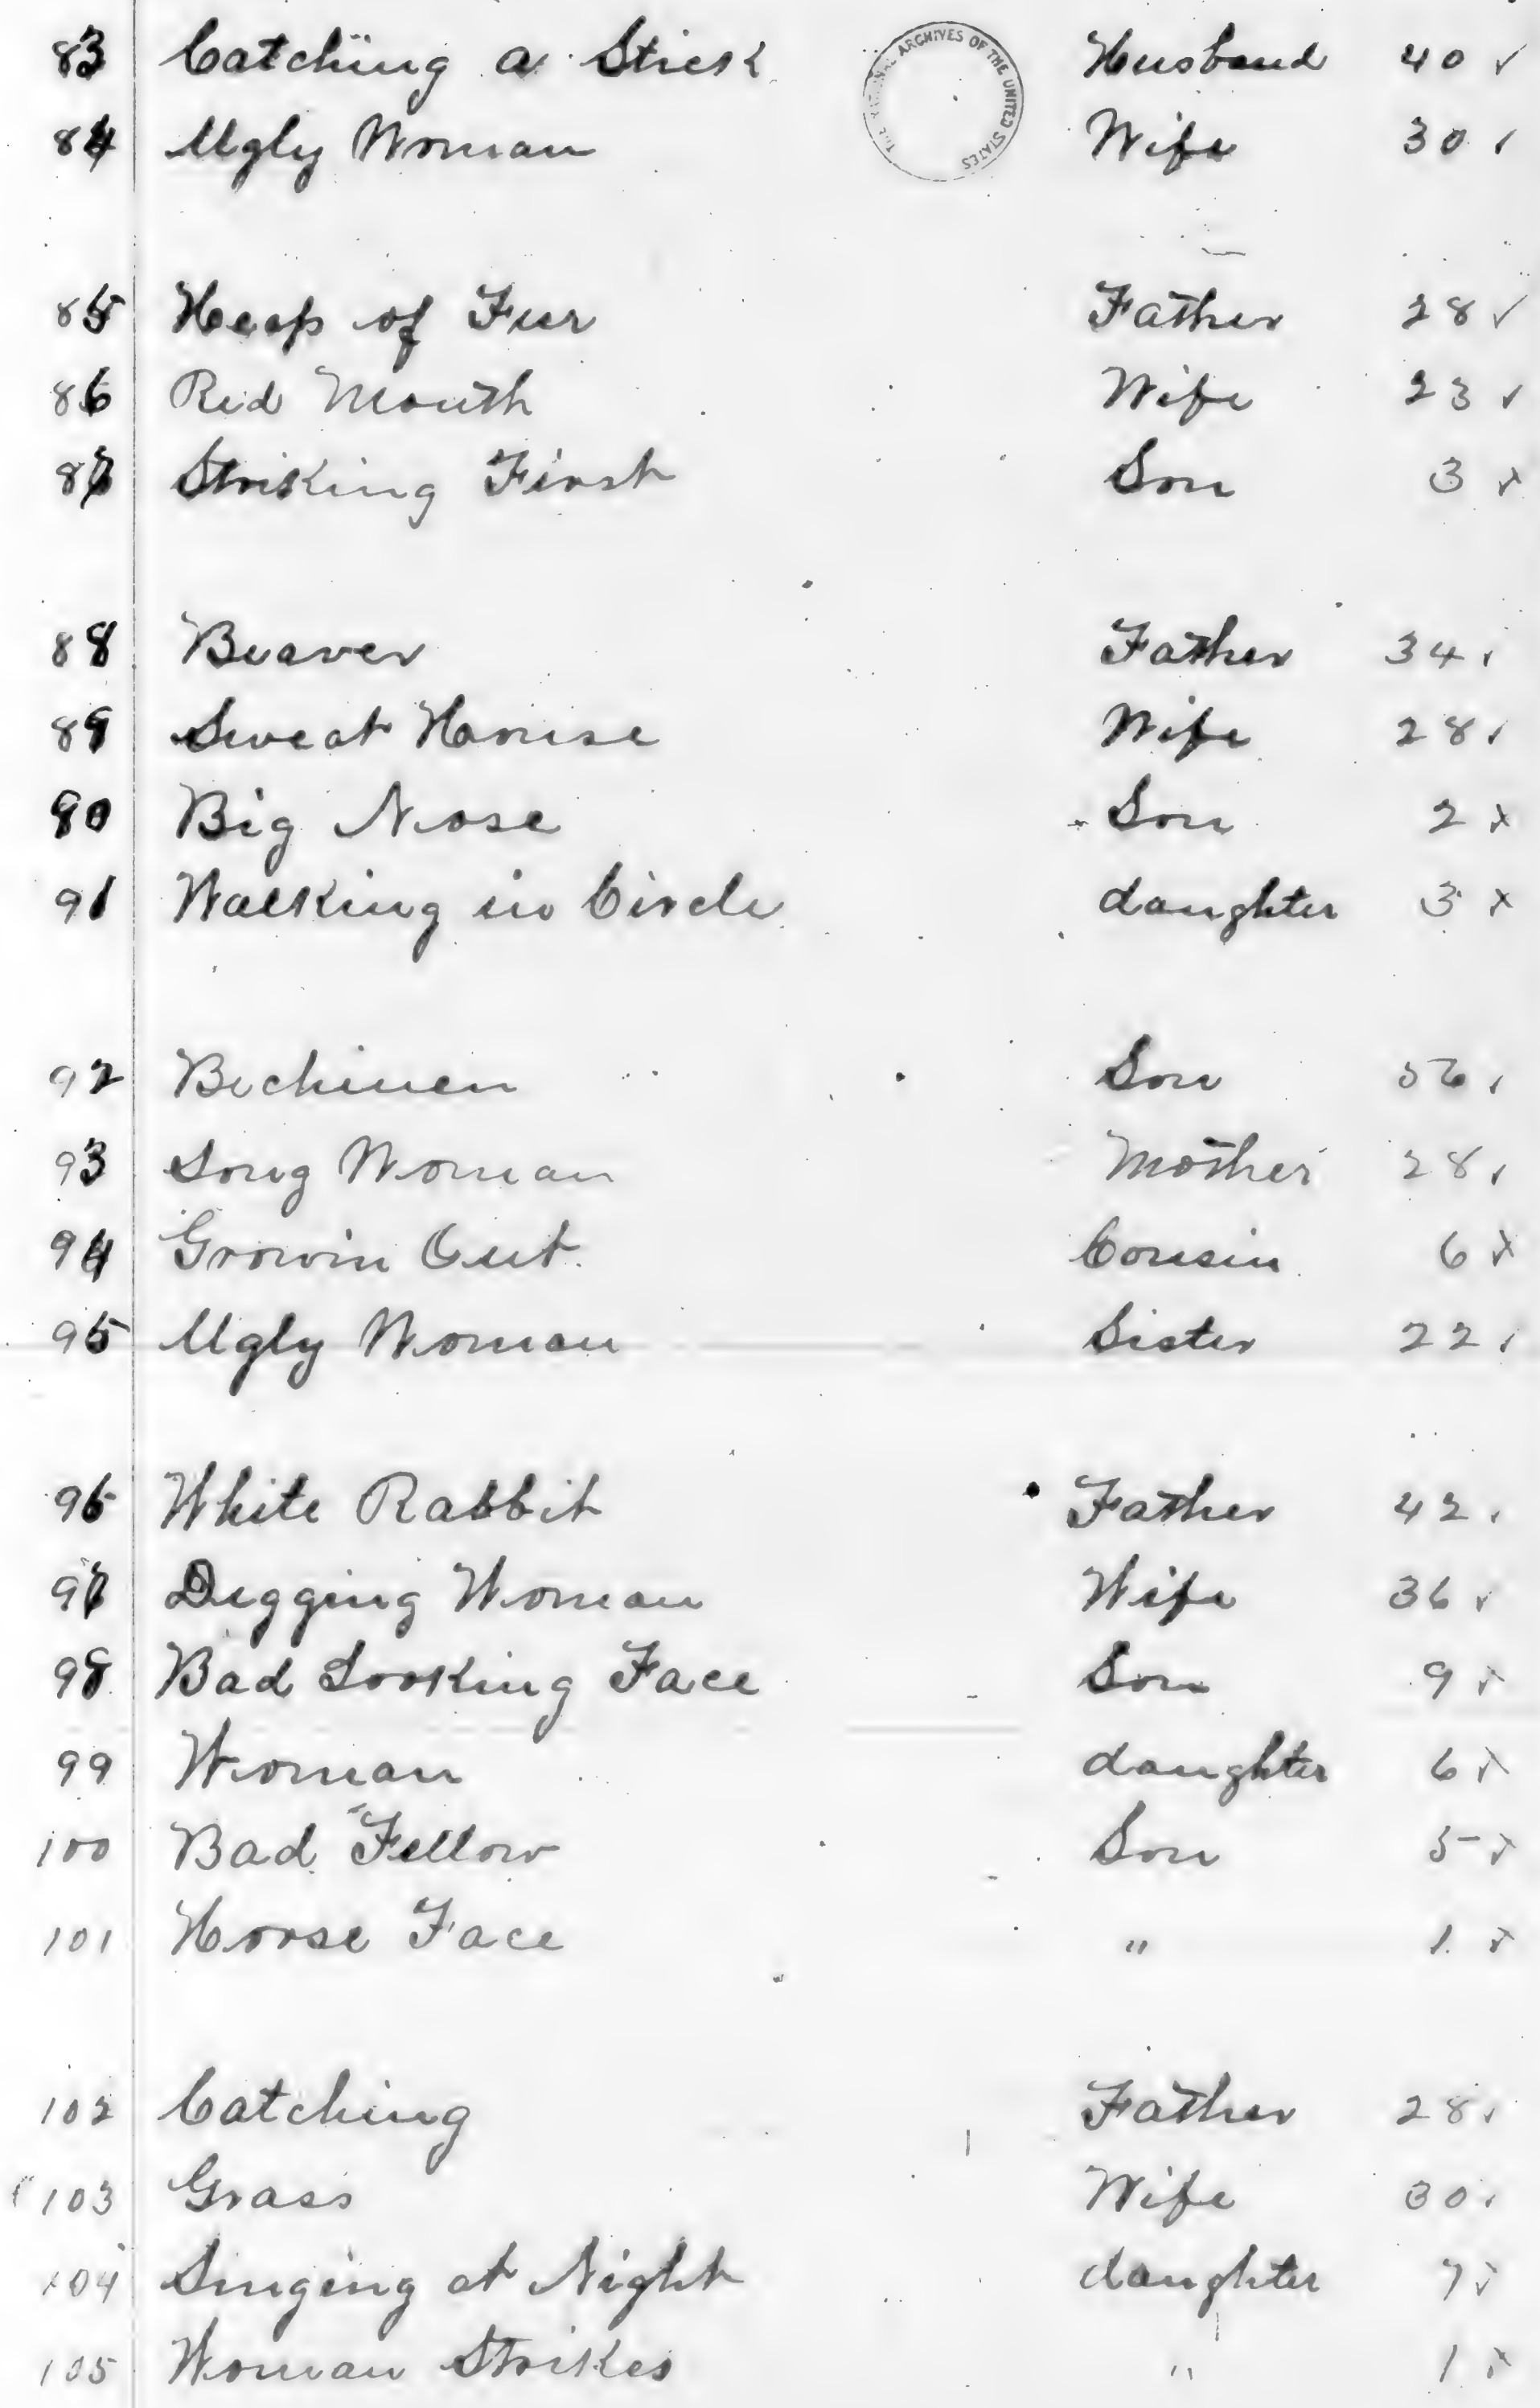 83 Catching a Stick Husband 40 ✓
THE NATIONAL ARCHIVES OF THE UNITED STATES
84 Ugly Woman Wife 30 ✓
85 Heap of Fur Father 28 ✓
86 Red Mouth Wife 23 ✓
87 Striking First Son 3 x
88 Beaver Father 34 ✓
89 Sweat House Wife 28 ✓
90 Big Nose Son 2 x
91 Walking in Circle daughter 3 x
92 Son ✓
93 Long Woman Mother 28 ✓
94 Growin Out Cousin 6 x
95 Ugly Woman Sister 22 ✓
96 White Rabbit Father 42 ✓
97 Digging Woman Wife 36 ✓
98 Bad Looking Face Son 9 x
99 Woman daughter 6 x
100 Bad Fellow Son 5 x
101 Horse Face " 1 x
102 Catching Father 28 ✓
103 Grass Wife 30 ✓
104 Singing at Night daughter 7 x
105 Woman Strikes " 1 x